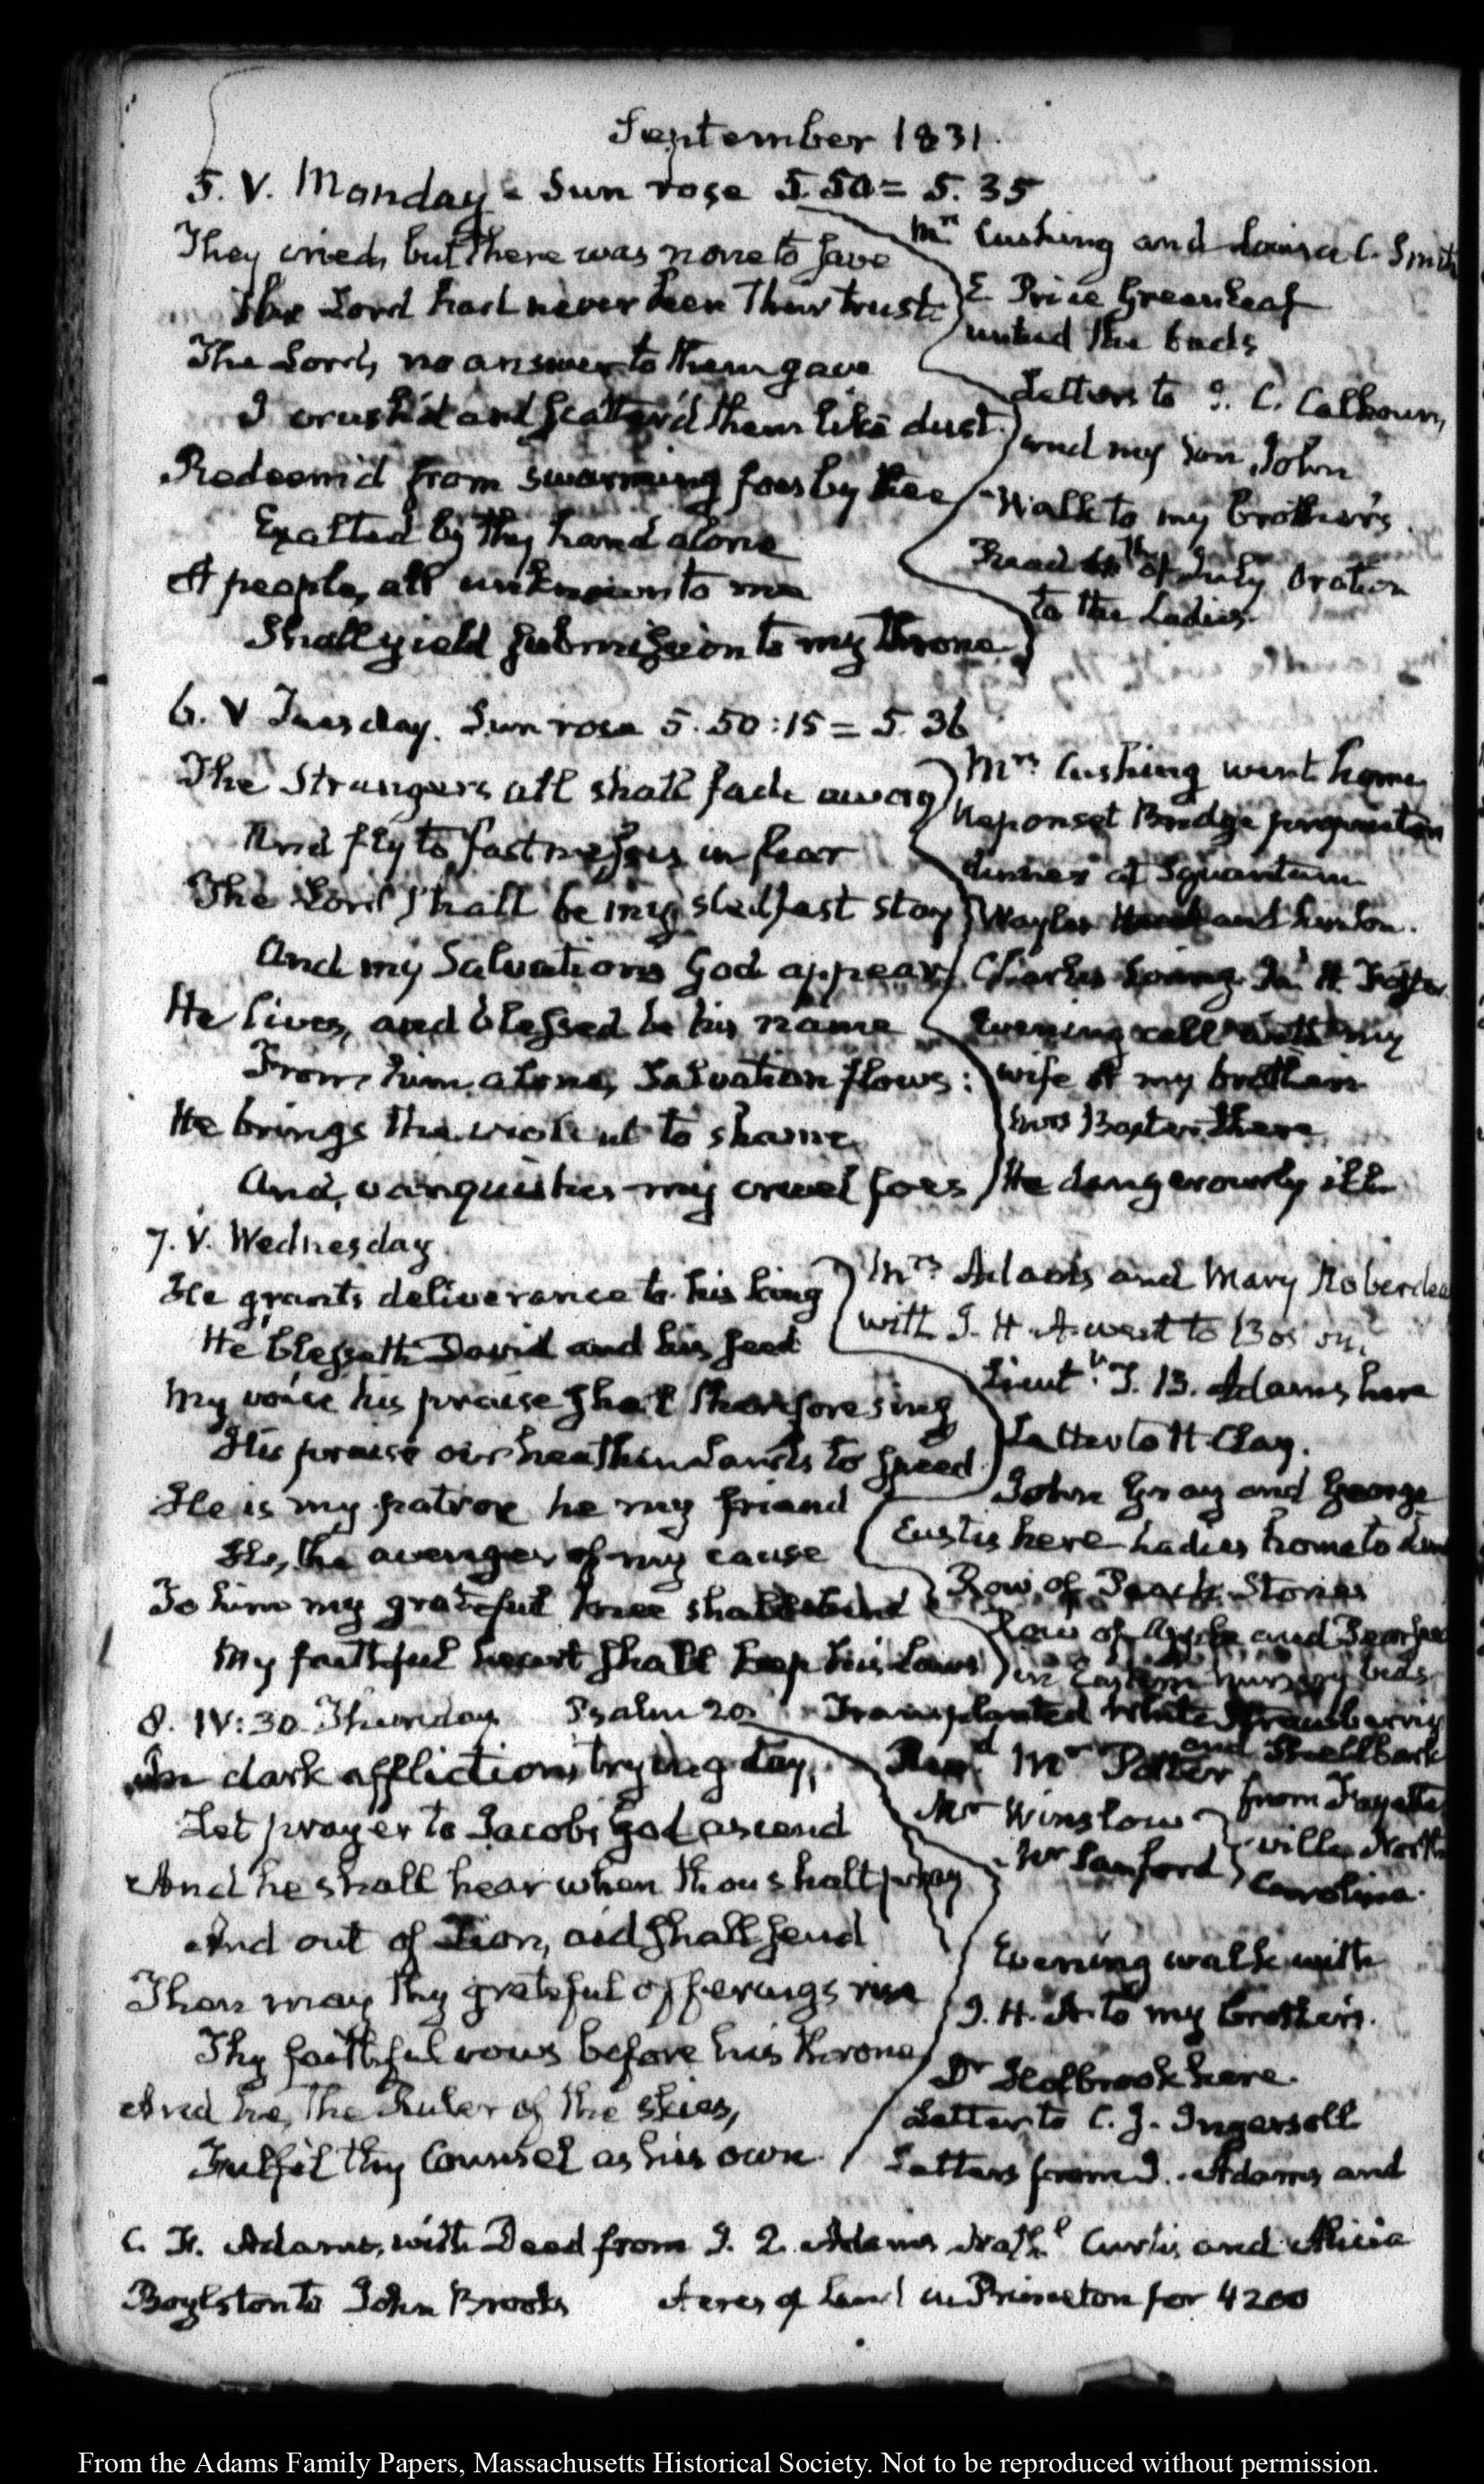 September 1831.
5. V. Monday - Sun rose 5.50 = 5.35
They cried, but there was none to save
The Lord had never been their trust
The Lord, no answer to them gave
I crush'd and scatter'd them like dust.
Redeem'd from swarming foes by thee
Exalted by thy hand alone
A people, all unknown to me
Shall yield submission to my throne
Mrs Cushing and Louisa C. Smith
E Price Greenleaf
the buds
Letters to J. C. Calhoun,
and my Son John
Walk to my brother's
Read 4th of July Oration
to the Ladies.
6. V Tuesday. Sun rose 5.50:15 = 5.36
The Strangers all shall fade away
And fly to fastnesses in fear
The Lord shall be my stedfast stay
And my Salvation's God appear
He lives, and blessed be his name
From him alone, Salvation flows:
He brings the violent to shame
And, vanquishes my cruel foes
Mrs Cushing went home
Neponset Bridge
dinner at Squantum
and
Charles
Evening call with my
wife at my brother's
Mrs Baxter there
He dangerously ill
7. V. Wednesday
He grants deliverance to his king
He blesseth David and his seed
My voice his praise shall therefore sing
His praise o'er heathen Lands to speed
He is my patron he my friend
He, the avenger of my cause
To him my grateful knee shall bend
My faithful heart shall keep his Laws
Mrs Adams and Mary Roberdeau
with I. H. A. went to Boston
Lieutt T. B. Adams here
Letter to H. Clay.
John Gray and George
Eustis here Ladies home to
Row of Peach Stones
Row of Apple and
in Eastern nursery beds
8. IV:30 Thursday Psalm 20 Transplanted White Strawberries
and Shellbark
In dark affliction's trying day,
Let prayer to Jacob's God ascend
And he shall hear when thou shalt pray
And out of Zion, aid shall send
Then may thy grateful offerings rise
Thy faithful vows before his throne
And he, the Ruler of the skies,
Fulfil thy Counsel as his own.
Revd Mr Potter
Mr Winslow
Mr Sanford
from Fayette
ville North
Carolina.
Evening walk with
I. H. A. to my brother's.
Dr Holbrook here.
Letter to C. J. Ingersoll
Letters from J. Adams and
C. F. Adams, with Deed from J. Q. Adams Nathl Curtis and Alicia
Boylston to John Brooks Acres of Land in Princeton for 4200
From the Adams Family Papers, Massachusetts Historical Society. Not to be reproduced without permission.